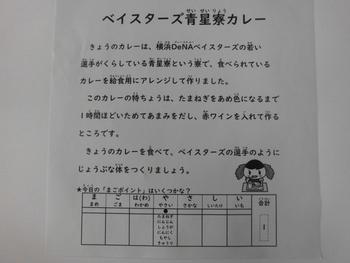 ベイスターズ青星寮カレー
せい せい りょう
きょうのカレーは、横浜DeNAベイスターズの若い
選手がくらしている青星寮という寮で、食べられている
カレーを給食用にアレンジして作りました。
このカレーの特ちょうは、たまねぎをあめ色になるまで
1時間ほどいためてあまみをだし、赤ワインを入れて作る
ところです。
きょうのカレーを食べて、ベイスターズの選手のように
じょうぶな体をつくりましょう。
★今日の「まごポイント」はいくつかな?
ま ご は(わ) や さ し い 合計
まめ ごま わかめ やさい さかな しいたけ いも
● 1
たまねぎ
にんじん
しょうが
にんにく
もやし
きゅうり